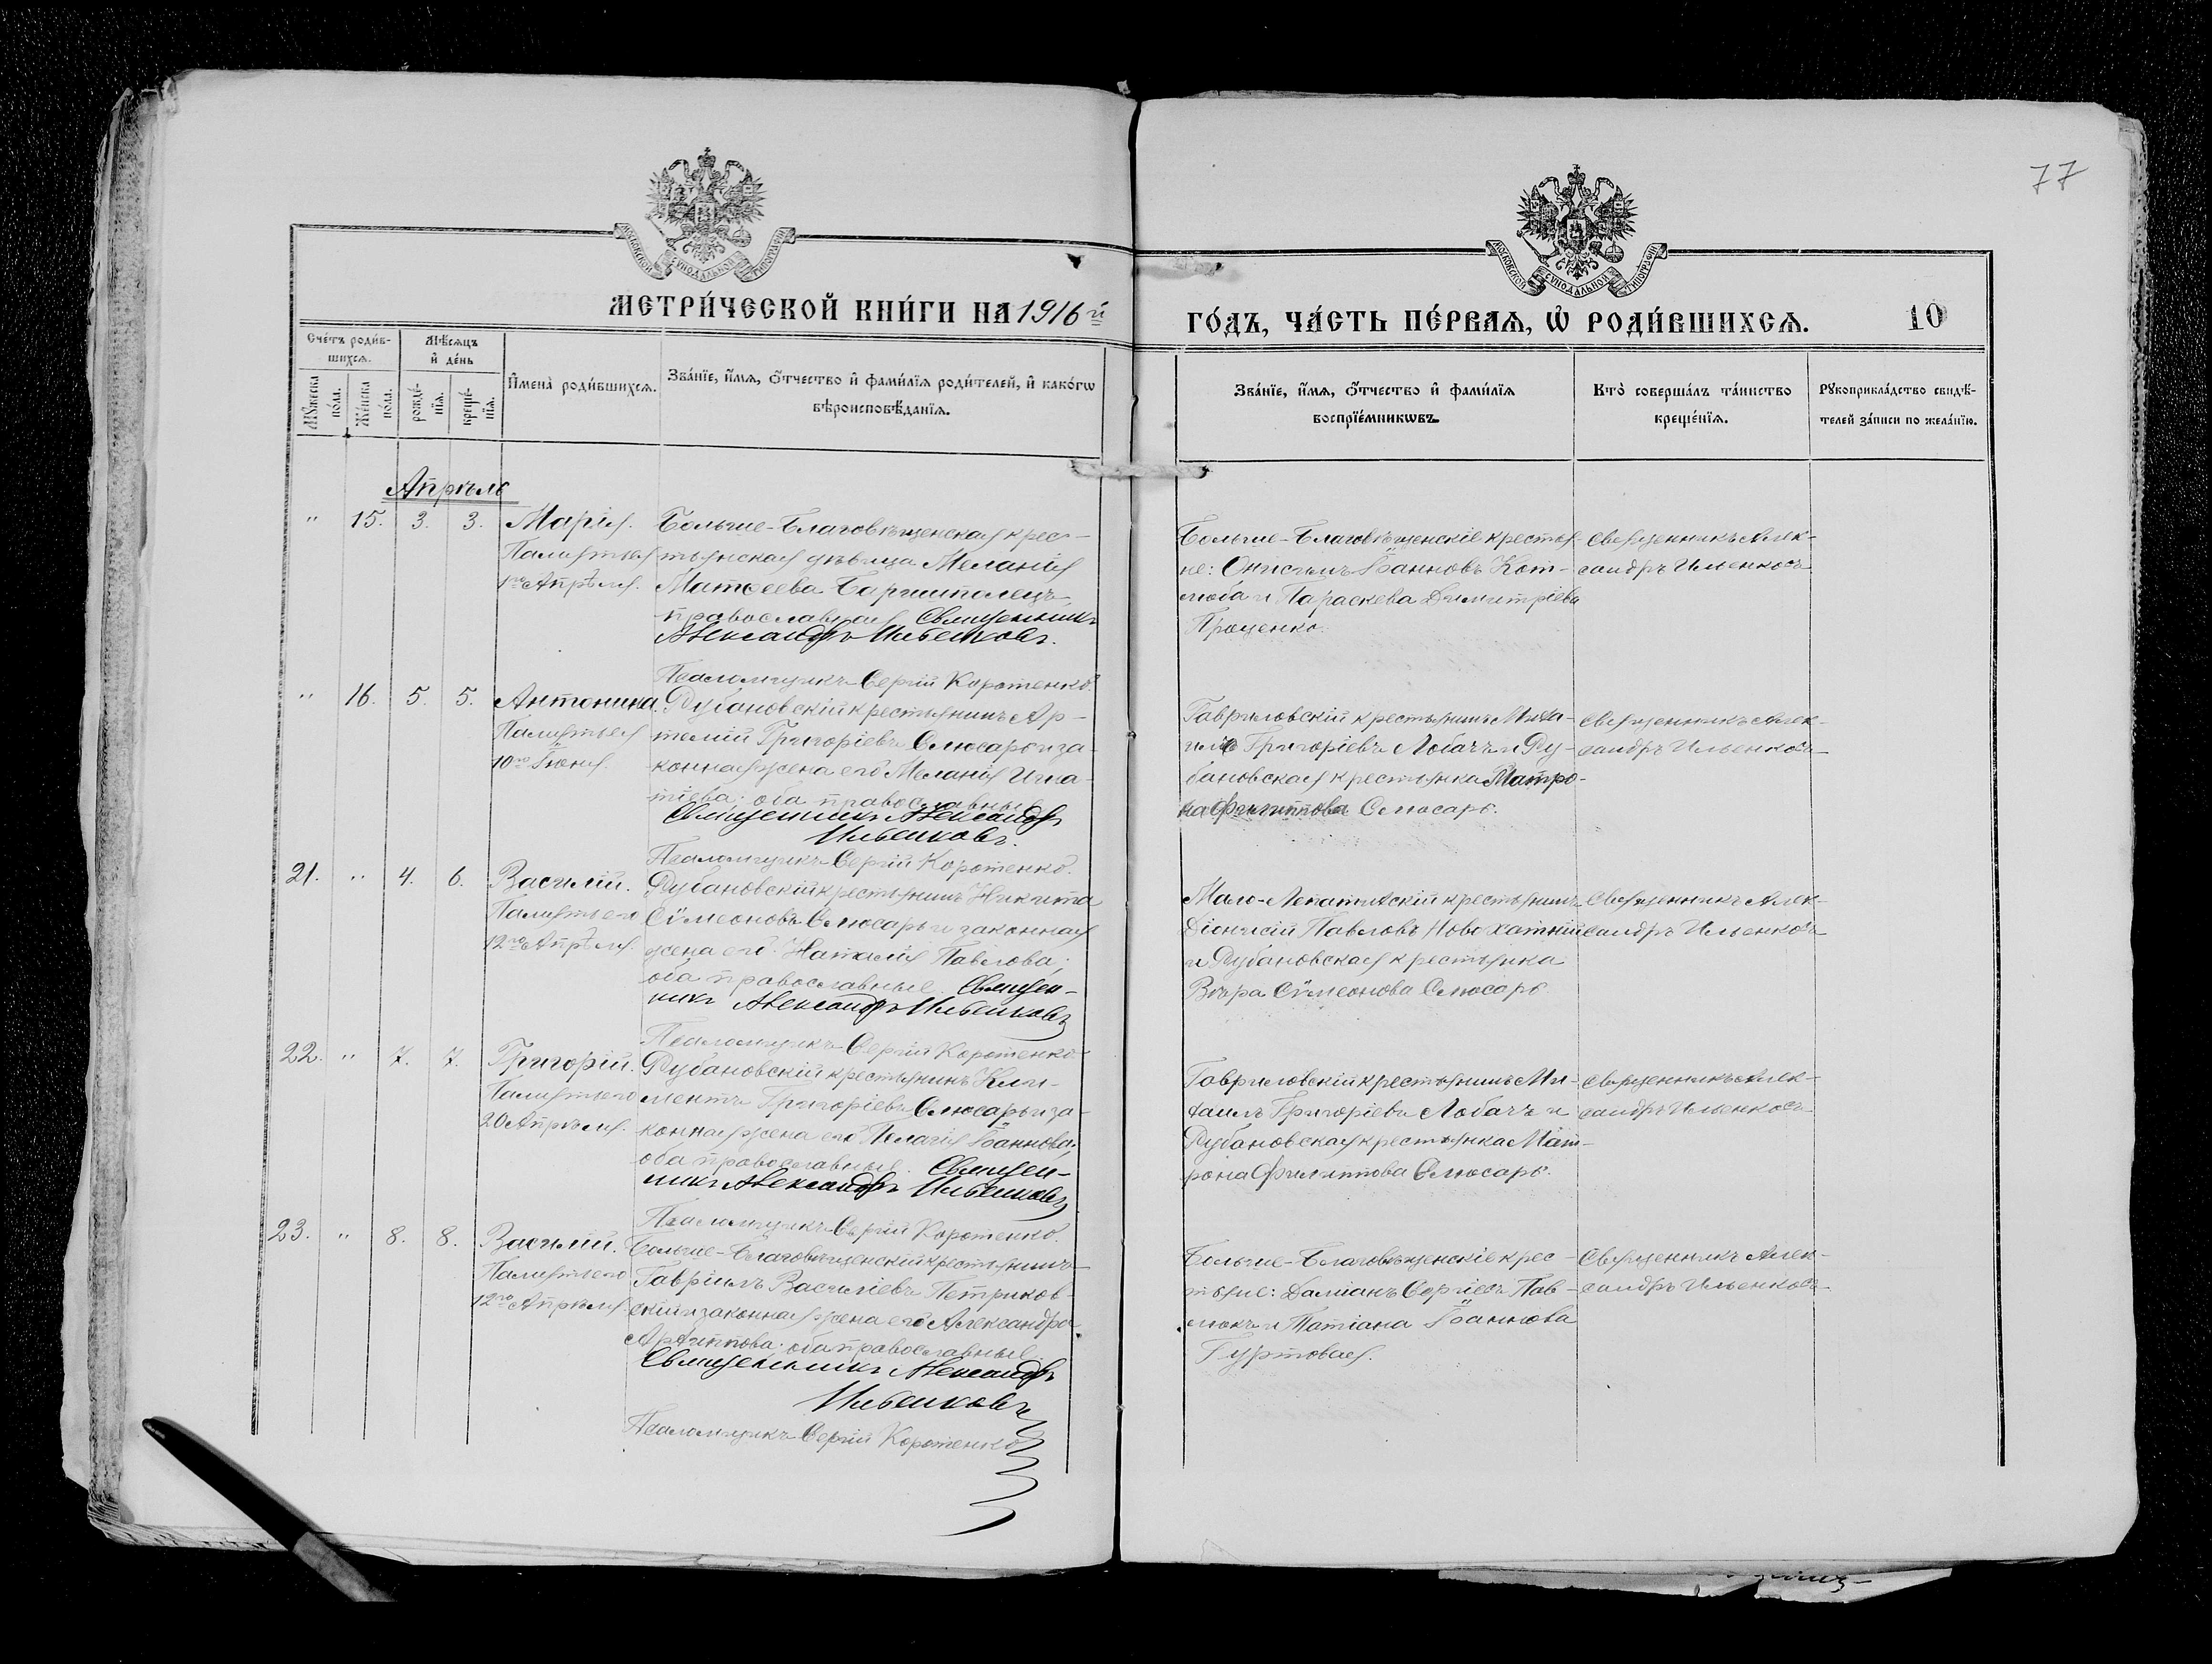 77
МОСКОВСКОЙ СѴНОДАЛЬНОЙ ТИПОГРАФІИ
МОСКОВСКОЙ СѴНОДАЛЬНОЙ ТИПОГРАФІИ
МЕТРИ́ЧЕСКОЙ КНИ́ГИ НА 1916й
ГО́ДЪ, ЧА́СТЬ ПЕ́РВАЯ, Ѡ҆ РОДИ́ВШИХСЯ. 10
Сче́тъ роди́в-
шихся.
Мѣ́сяцъ
и҆ де́нь
Мꙋ́жеска
по́ла.
Же́нска
по́ла.
рожде́-
нїя.
креще́-
нїя.
И҆мена̀ роди́вшихся.
Зва́нїе, и҆́мя, ѻ҆́тчество и҆ фами́лїя роди́телей, и҆ како́гѡ
вѣроисповѣ́данїя.
Зва́нїе, и҆́мя, ѻ҆́тчество и҆ фами́лїя
воспрїе́мникѡвъ.
Кто̀ соверша́лъ та́инство
креще́нїя.
Рꙋкоприкла́дство свидѣ́-
телей за́писи по жела́нїю.
Апрѣль
" 15. 3. 3. Марія.
Память ея
1го Апрѣля.
Больше-Благовѣщенская крес-
тьянская дѣвица Меланія
Матѳеева Баришполецъ,
православная Священникъ
Александръ Ильенковъ.
Псаломщикъ Сергій Коротенко.
Больше-Благовѣщенскіе крестья-
не: Онисимъ Іоанновъ Кот-
люба и Параскева Димитріева
Проценко.
Священникъ Алек-
сандръ Ильенковъ
" 16. 5. 5. Антонина.
Память ея
10го Іюня.
Рубановскій крестьянинъ Ар-
темій Григоріевъ Слюсарь и за-
конная жена его Меланія Игна-
тіева; оба православные
Священникъ Александръ
Ильенковъ.
Псаломщикъ Сергій Коротенко.
Гавриловскій крестьянинъ Миха-
илъ Григоріевъ Лобачъ и Ру-
бановская крестьянка Матро-
на Филиппова Слюсарь.
Священникъ Алек-
сандръ Ильенковъ
21. " 4. 6. Василій.
Память его
12го Апрѣля.
Рубановскій крестьянинъ Никита
Сѵмеоновъ Слюсарь и законная
жена его Наталія Павлова;
оба православные. Священ-
никъ Александръ Ильенковъ
Псаломщикъ Сергій Коротенко
Мало-Лепатихскій крестьянинъ
Діонисій Павловъ Новохатній
и Рубановская крестьянка
Вѣра Сѵмеонова Слюсарь
Священникъ Алек-
сандръ Ильенковъ
22. " 7. 7. Григорій.
Память его
20 Апрѣля.
Рубановскій крестьянинъ Кли-
ментъ Григоріевъ Слюсарь и за-
конная жена его Пелагія Іоаннова;
оба православные. Священ-
никъ Александръ Ильенковъ
Псаломщикъ Сергій Коротенко.
Гавриловскій крестьянинъ Ми-
хаилъ Григоріевъ Лобачъ и
Рубановская крестьянка Мат-
рона Филиппова Слюсарь.
Священникъ Алек-
сандръ Ильенковъ
23. " 8. 8. Василій.
Память его
12го Апрѣля.
Больше-Благовѣщенскій крестьянинъ
Гавріилъ Василіевъ Петриков-
скій и законная жена его Александра
Архиппова; оба православные.
Священникъ Александръ
Ильенковъ
Псаломщикъ Сергій Коротенко
Больше-Благовѣщенскіе крес-
тьяне: Даміанъ Сергіевъ Пав-
люкъ и Татіана Іоаннова
Гуртовая.
Священникъ Алек-
сандръ Ильенковъ